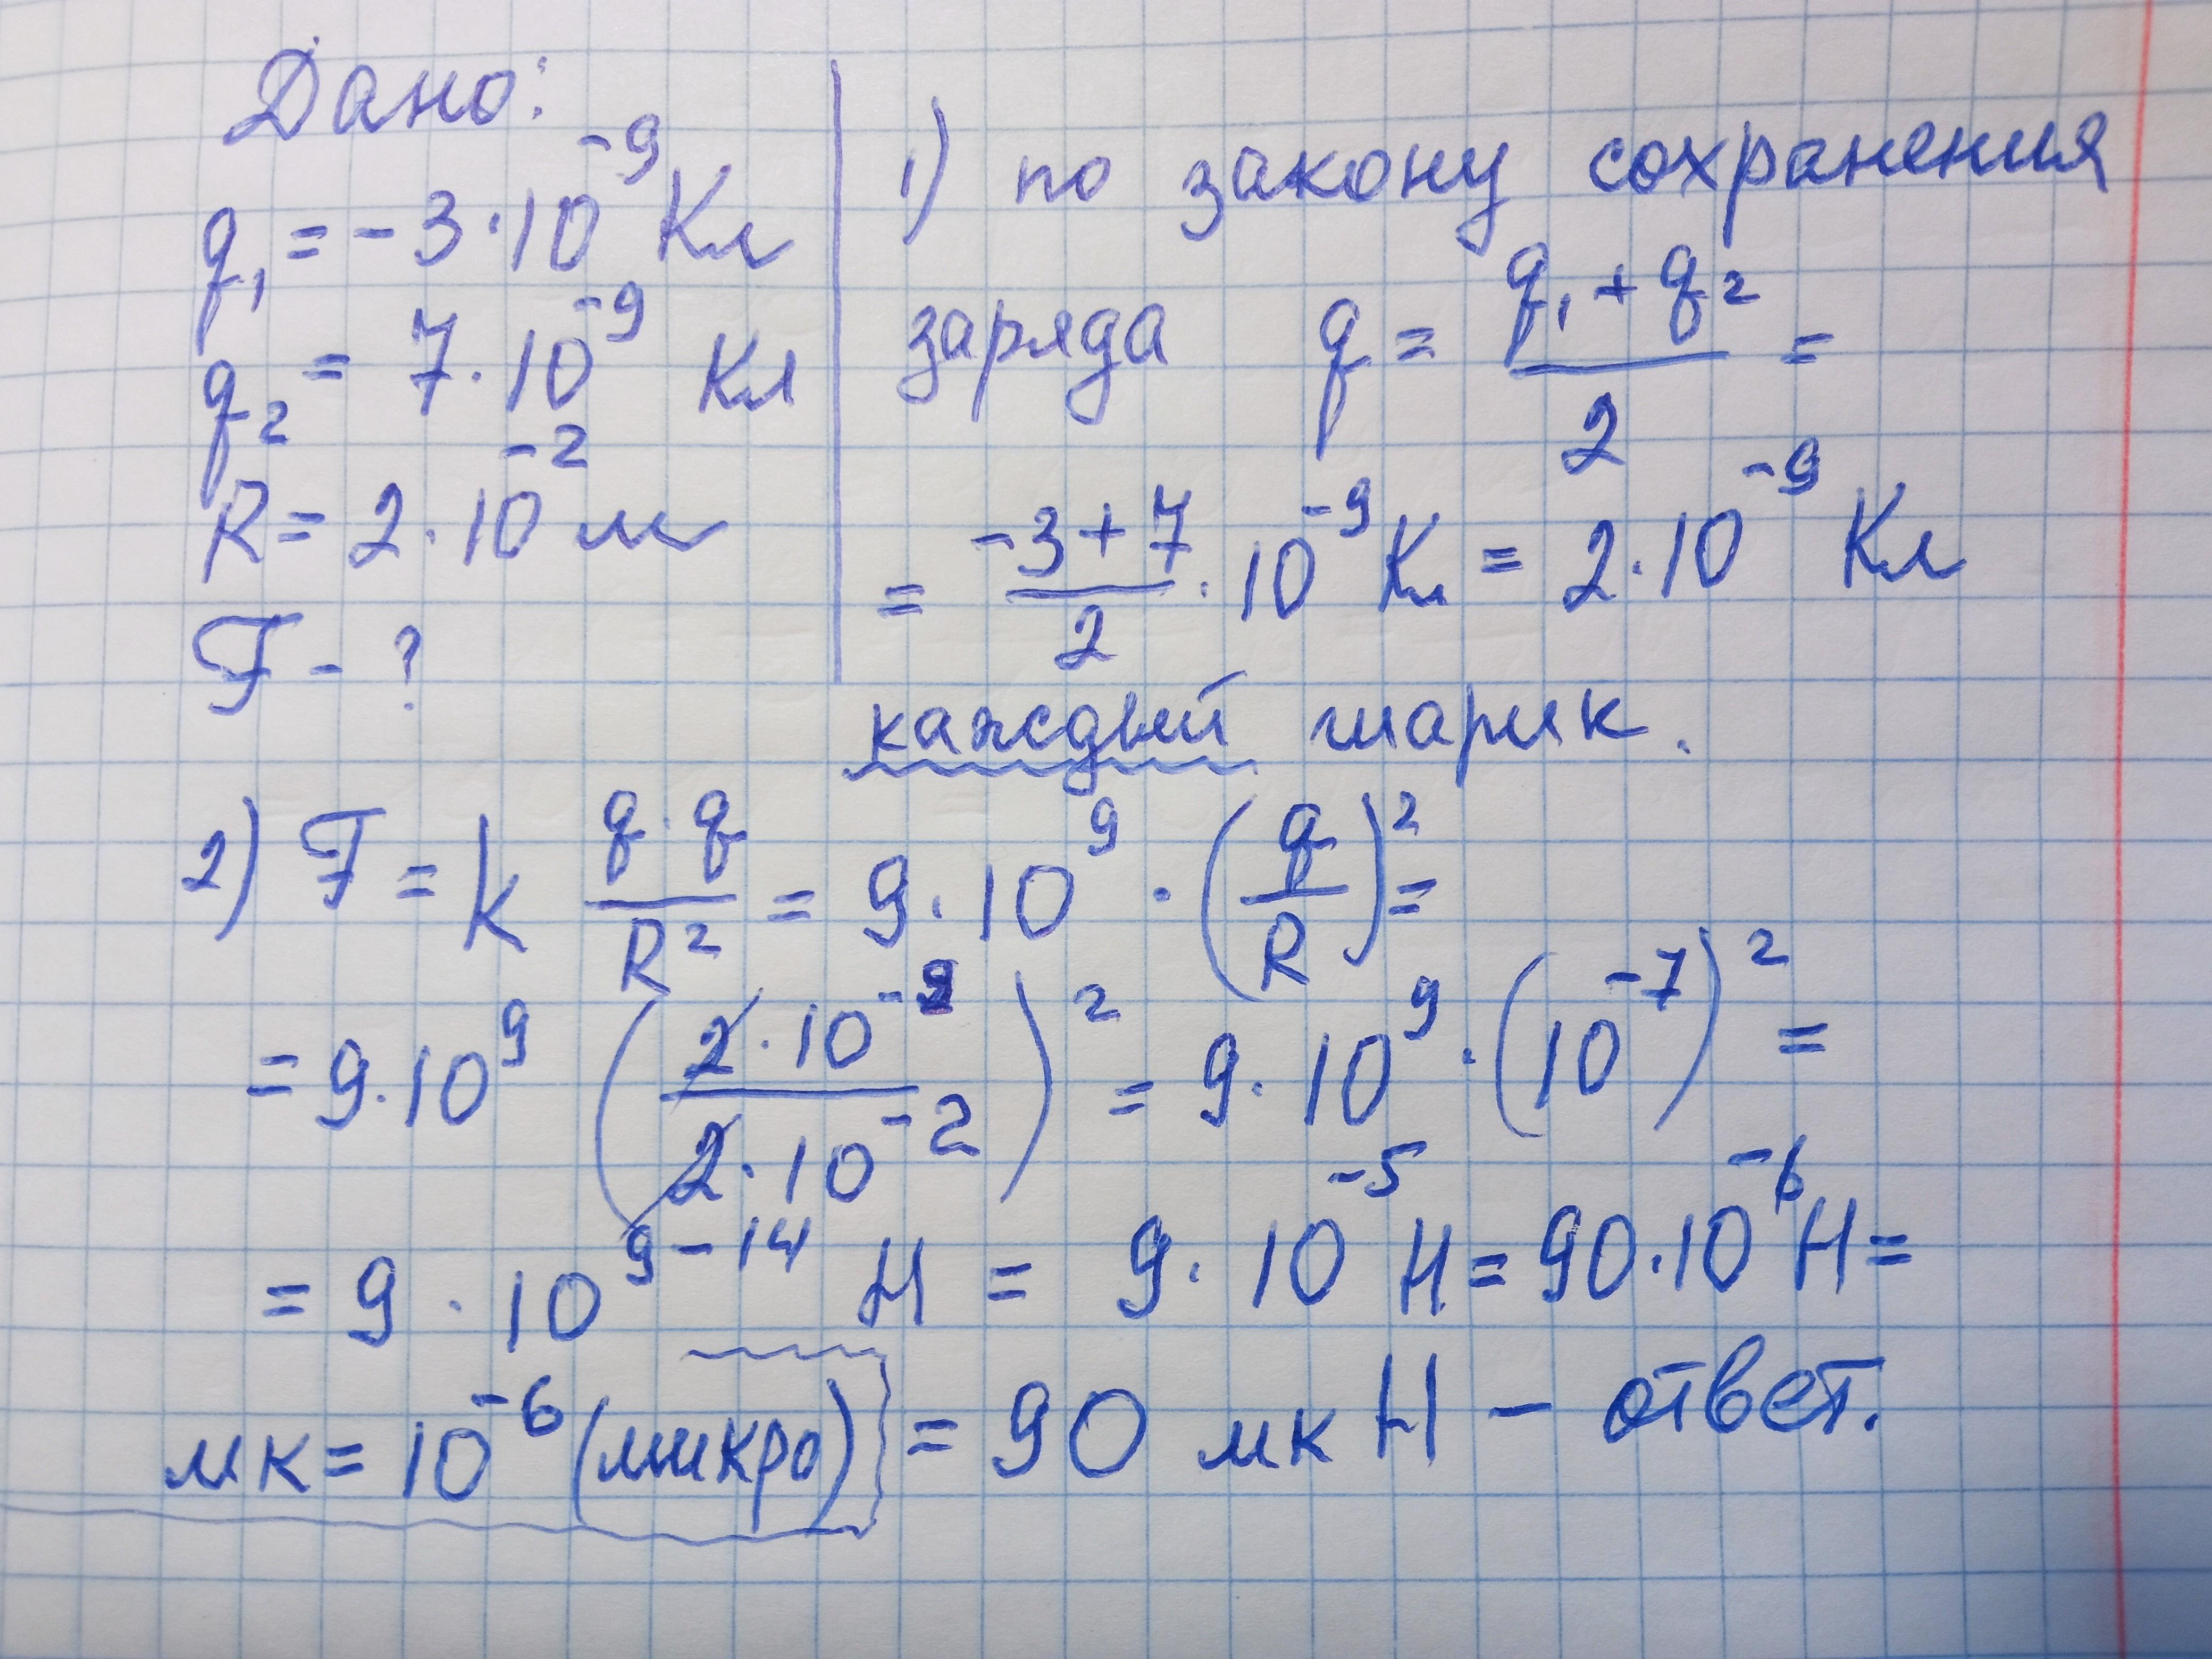 Дано:
q₁ = -3·10⁻⁹ Кл
q₂ = 7·10⁻⁹ Кл
R = 2·10⁻² м
F - ?
1) по закону сохранения
заряда q = (q₁ + q₂)/2 =
= (-3+7)/2 · 10⁻⁹ Кл = 2·10⁻⁹ Кл
каждый шарик.
2) F = k (q·q)/R² = 9·10⁹ · (q/R)² =
= 9·10⁹ ((2·10⁻⁹)/(2·10⁻²))² = 9·10⁹ · (10⁻⁷)² =
= 9 · 10⁹⁻¹⁴ Н = 9·10⁻⁵ Н = 90·10⁻⁶ Н =
мк = 10⁻⁶ (микро) = 90 мк Н - ответ.